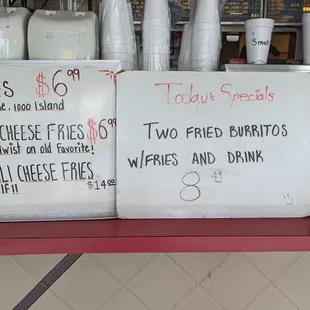 Small
S $6⁹⁹
se. 1000 Island
CHEESE FRIES $6
twist on old Favorite!
LI CHEESE FRIES
IF!! $14⁰⁰
Today's Specials
TWO FRIED BURRITOS
W/FRIES AND DRINK
8⁴⁹